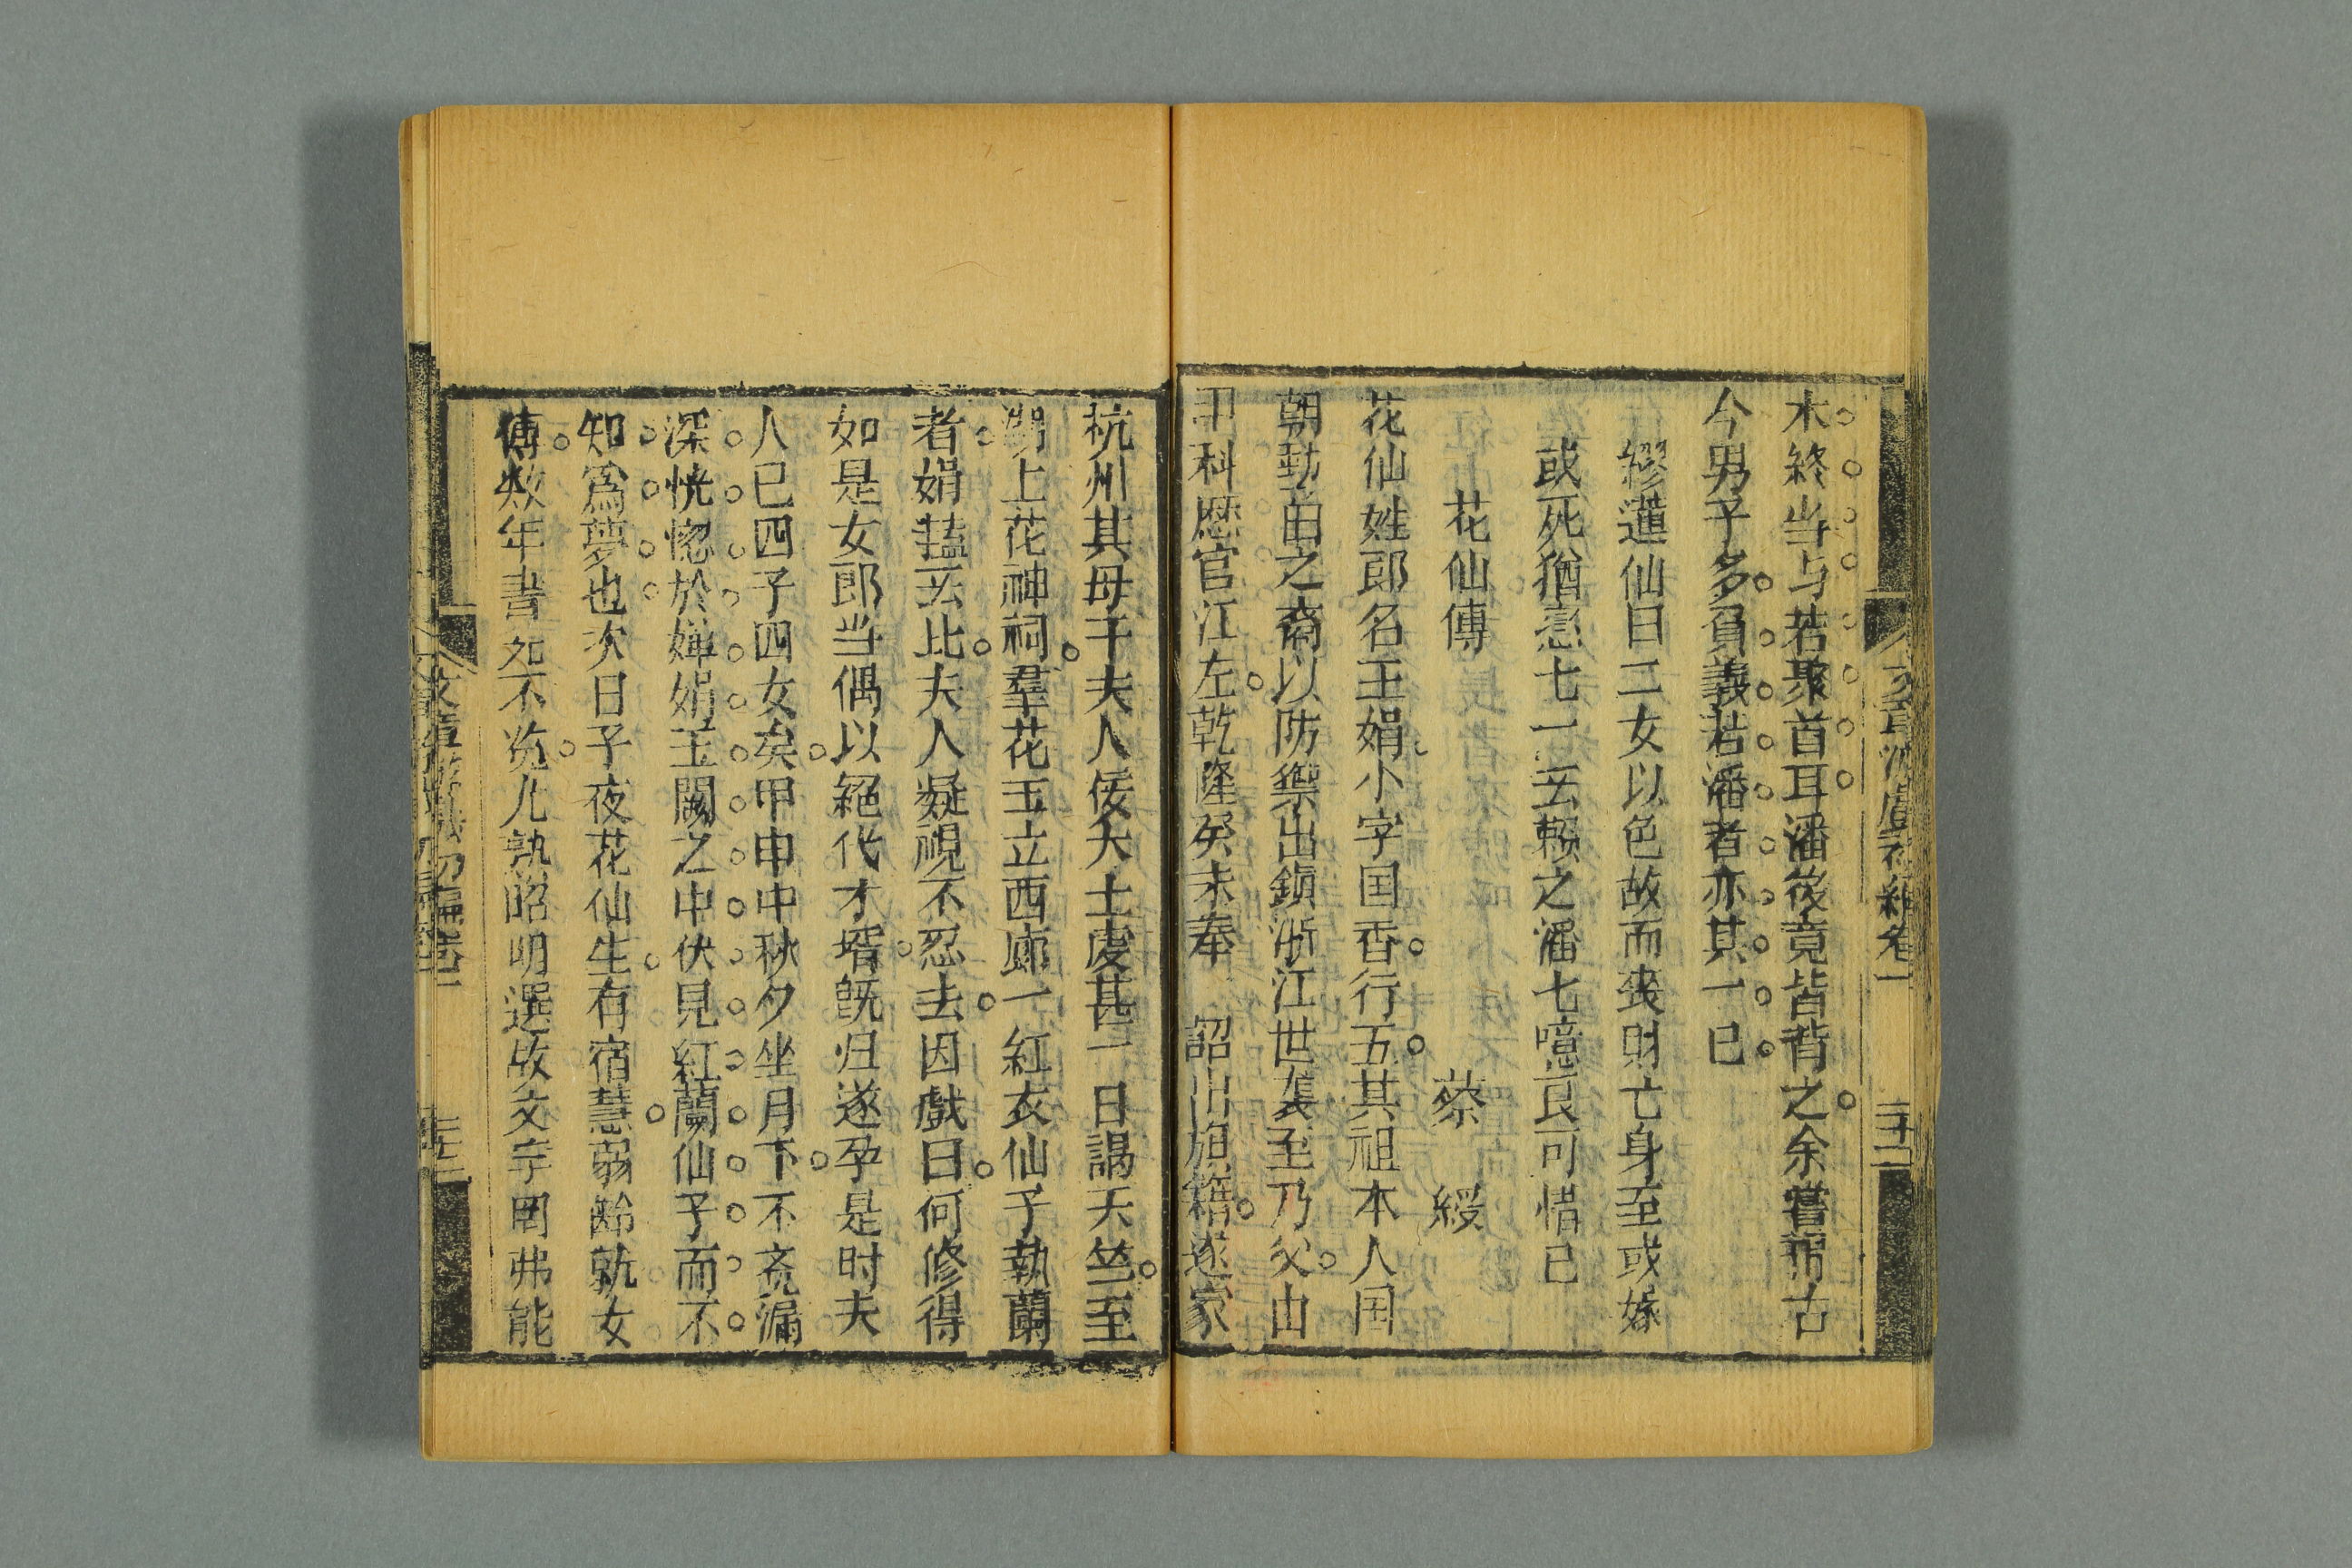 木終当与若聚首耳潘後竟皆背之余嘗稱古
今男子多負義若潘者亦其一已
繆蓮仙曰二女以色故而喪財亡身至或嫁
或死猶恋七一云賴之潘七噫良可惜已
花仙傳
蔡 綬
花仙姓郎名玉娟小字国香行五其祖本人国
朝勁苗之裔以防禦出鎮浙江世袭至乃父由
甲科歷官江左乾隆癸未奉 詔出旗籍遂家
杭州其母干夫人佞大士虔甚一日謁天竺至
湖上花神祠羣花玉立西廊一紅衣仙子執蘭
者娟䔾云比夫人凝視不忍去因戲曰何修得
如是女郎当偶以絕代才壻既归遂孕是时夫
人已四子四女矣甲申中秋夕坐月下不斋漏
深恍惚於嬋娟玉闕之中伏見紅蘭仙子而不
知爲夢也次日子夜花仙生有宿慧弱齡就女
傅数年書如不沇儿孰昭明選故文字罔弗能
卷一
三十二
文章游戯初編卷一